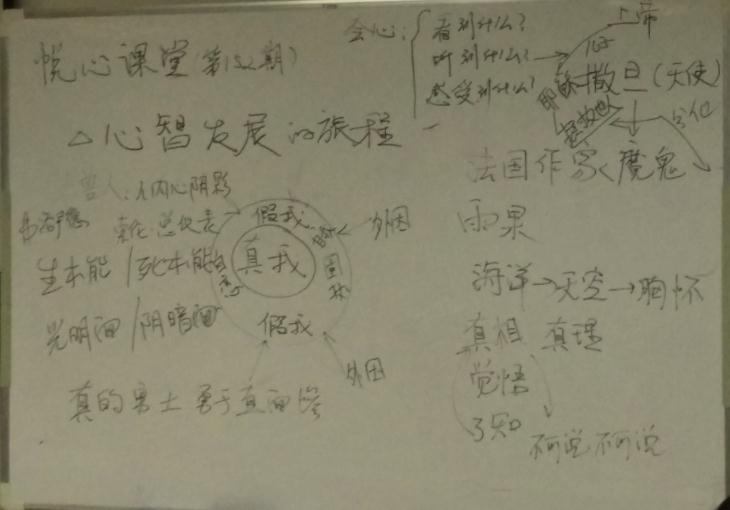 悦心课堂(第152期)
△心智发展的旅程
会心:
看到什么?
听到什么?
感受到什么?
上帝
化身
耶稣
撒旦(天使)
分化
法国作家
魔鬼
雨果
海洋→天空→胸怀
真相 真理
觉悟
了知
不可说 不可说
人内心阴影
假我
真我
假我
外因
外因
生本能/死本能
光明面/阴暗面
真的勇士 勇于直面惨